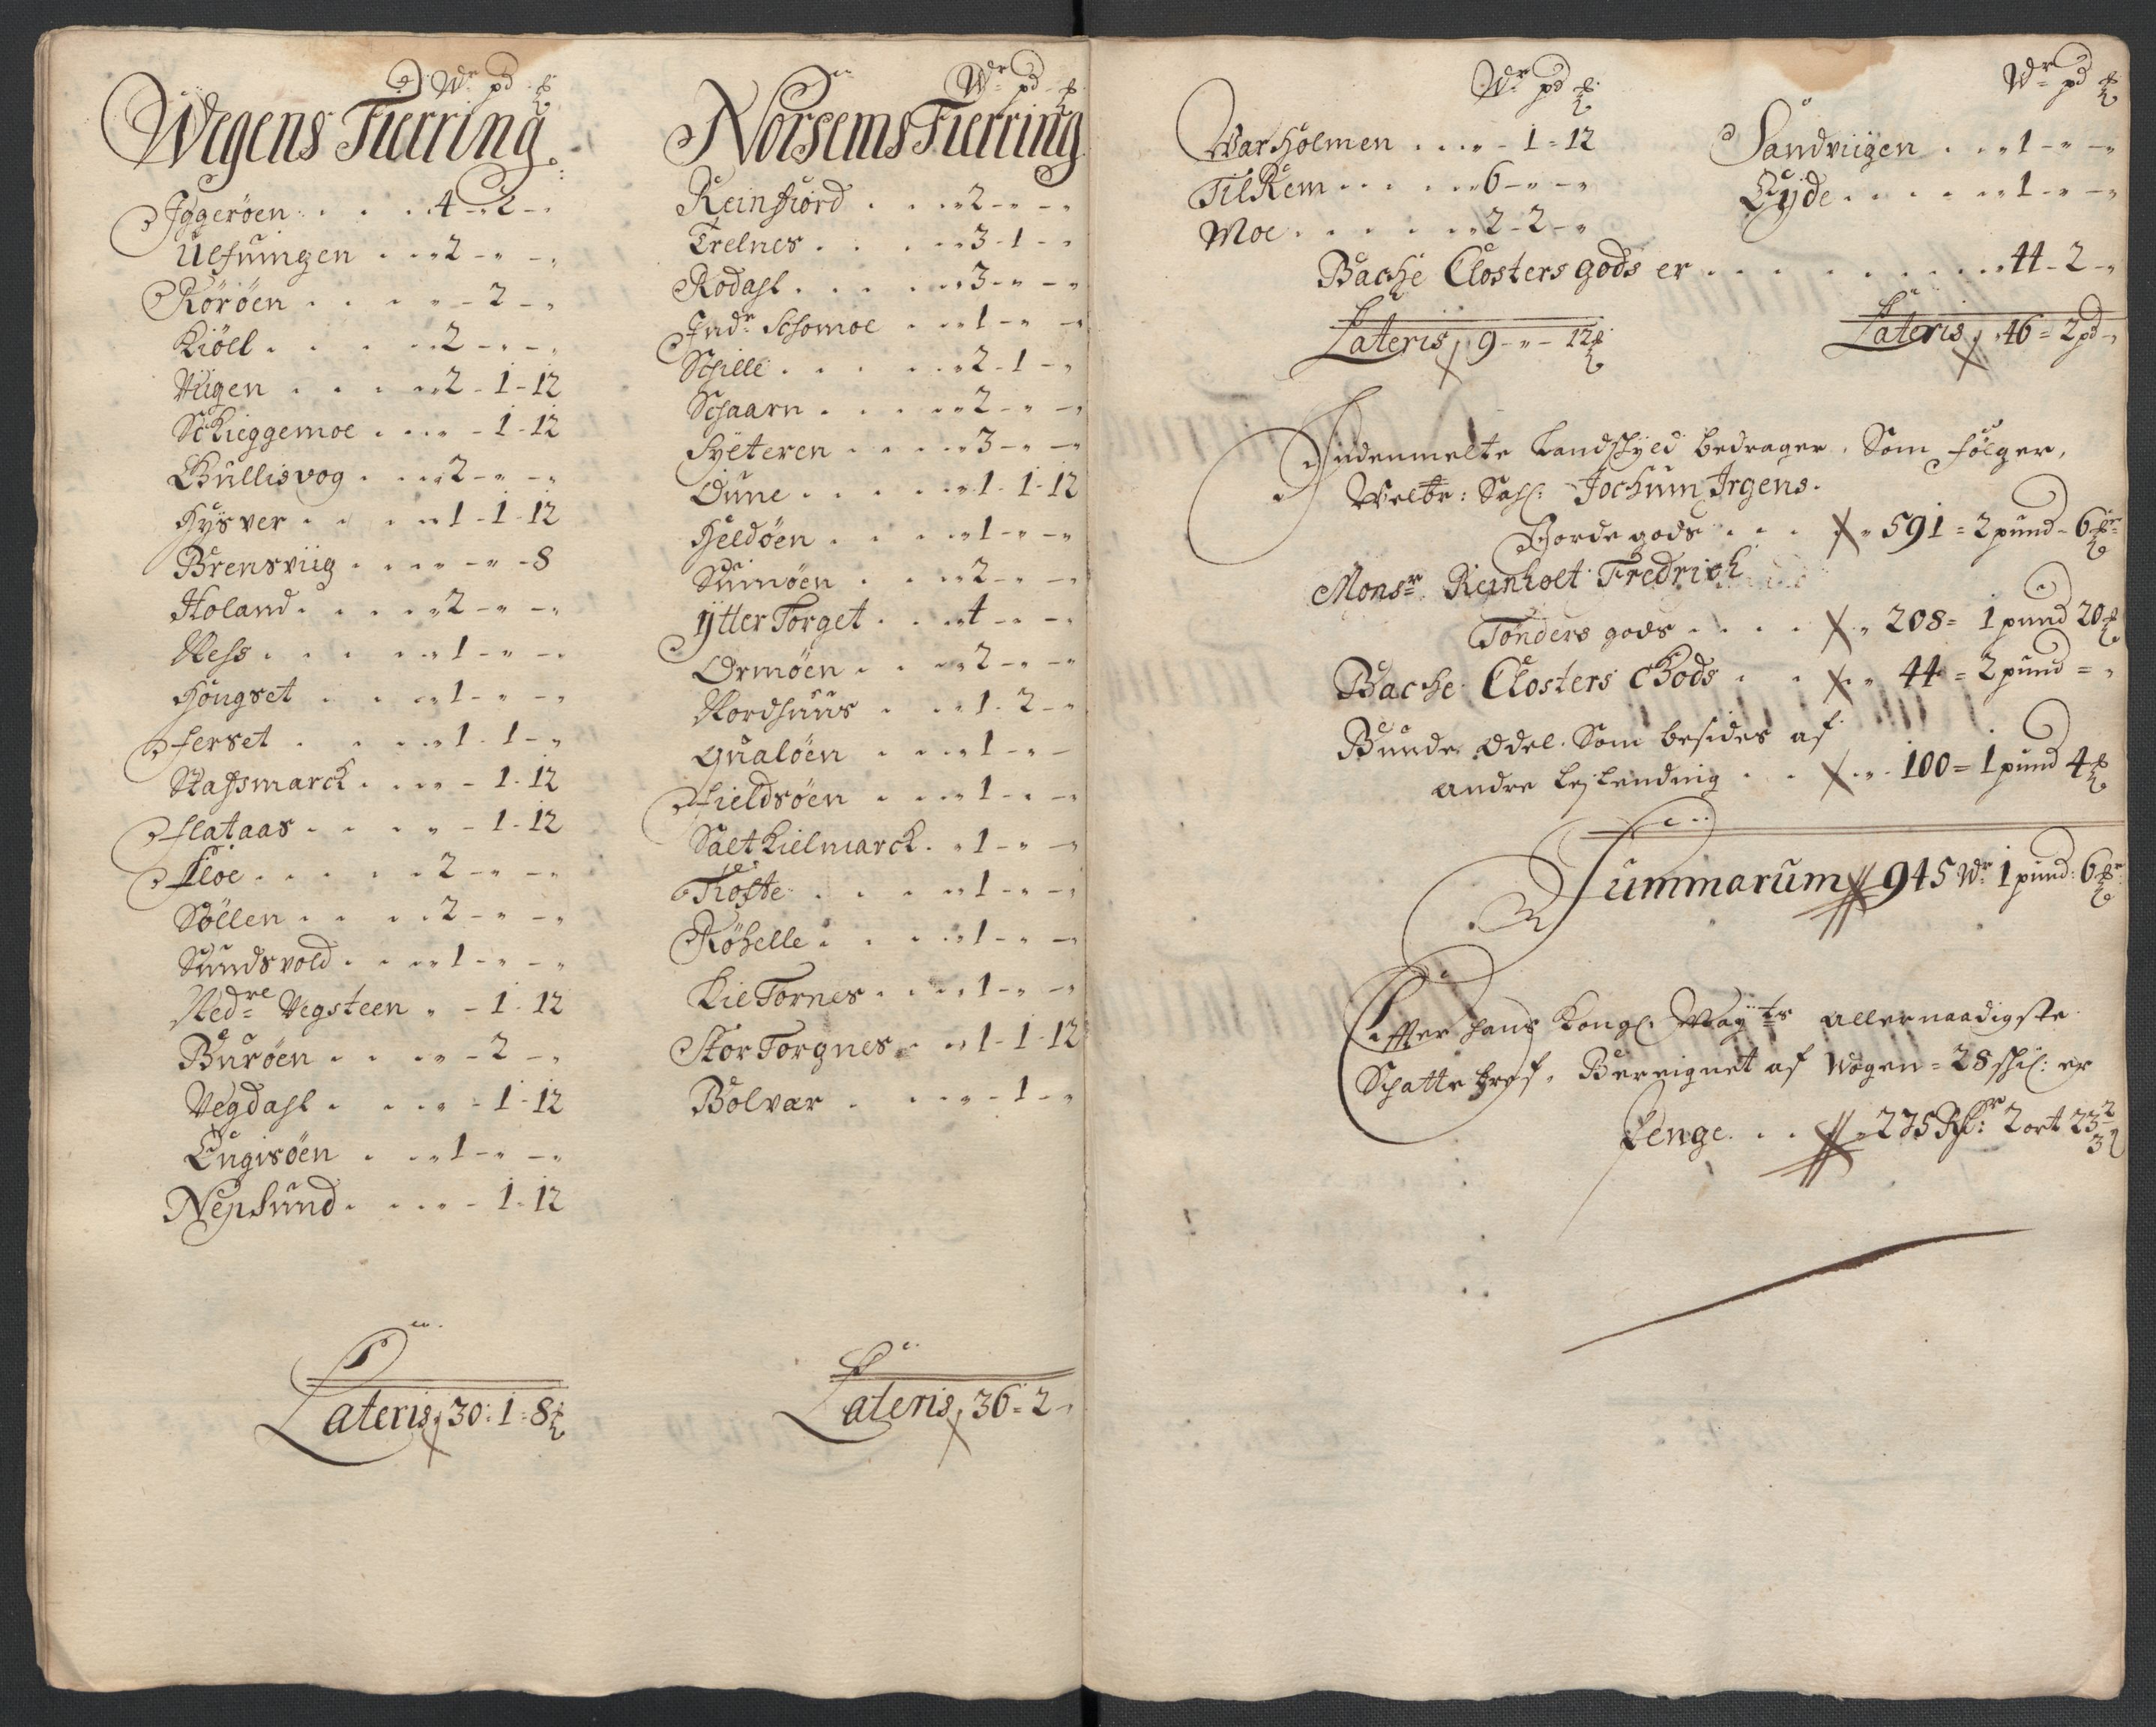 Wr pd ℔
Wegens Fierring
Jggerøen . . . . 4 - 2 - "
Ulfuingen . . . 2 - " - "
Rørøen . . . . " - 2 - "
Kiøll . . . . . 2 - " - "
Wiigen . . . . 2 - 1 - 12
Schieggemoe . . . " - 1 - 12
Gullisvog . . . . 2 - " - "
Hysver . . . . 1 - 1 - 12
Brensviig . . . . " - " - 8
Holand . . . . . 2 - " - "
Ness . . . . . 1 - " - "
Høngset . . . . 1 - " - "
Ferset . . . . . 1 - 1 - "
Stassmarck . . . . " - 1 - 12
Flataas . . . . . " - 1 - 12
Floe . . . . . 2 - " - "
Søllen . . . . 2 - " - "
Sundsvold . . . . 1 - " - "
Nedre Vegsteen " - 1 - 12
Burøen . . . . " - 2 - "
Vegdahl . . . . " - 1 - 12
Engisøen . . . 1 - " - "
Nepsund . . . . " - 1 - 12
Lateris 30 : 1 = 8 ℔
Wr pd ℔
Norsems Fierring
Reinfiord . . . . 2 - " - "
Trelnes . . . . . 3 - 1 - "
Rodahl . . . . . 3 - " - "
Indr Schomoe . . . 1 - " - "
Schille . . . . . 2 - 1 - "
Schaarn . . . . . 2 - " - "
Syeteren . . . . . 3 - " - "
Dune . . . . . 1 - 1 - 12
Heldøen . . . . . 1 - " - "
Sumøen . . . . 2 - " - "
Ytter Torget . . . 4 - " - "
Ormøen . . . . 2 - " - "
Nordhuus . . . 1 - 2 - "
Qualøen . . . . 1 - " - "
Fieldsøen . . . . 1 - " - "
Saltkielmarck . . 1 - " - "
Tiøtte . . . . . 1 - " - "
Røhelle . . . . . 1 - " - "
Kietornes . . . . 1 - " - "
Stor Torgnes . . . 1 - 1 - 12
Bolvær . . . . " - 1 - "
Lateris 36 = 2 - "
Wr pd ℔
Warholmen . . . . " - 1 = 12
Tilrem . . . . . 6 - " - "
Moe . . . . . . 2 - 2 - "
Wr pd ℔
Sandviigen . . . 1 - " - "
Eyde . . . . . . 1 - " - "
Bache Closters gods er . . . . . . . . . 44 - 2 - "
Lateris 9 - " - 12 ℔
Lateris 46 = 2 pd - "
Indenmelte Landskyld bedrager, Som følger,
Welbr: Sahl: Jochum Irgens
Jordegods . . . 591 = 2 pund - 6 ℔
Monsr Reinholt Fredrich
Tønders gods . . . . 208 = 1 pund 20 ℔
Bache Closters Gods . . . 44 = 2 pund = "
Bunde Odel Som besides af
andre Leylending . . . 100 = 1 pund 4 ℔
Summarum 945 Wr 1 pund: 6 ℔
Effter hans Kongl: Mayts allernaadigste
Schatte bref, Bereignet af Wogen = 28 skil: er
Penge . . . 275 Rdr: 2 ort 23 2/3 ß